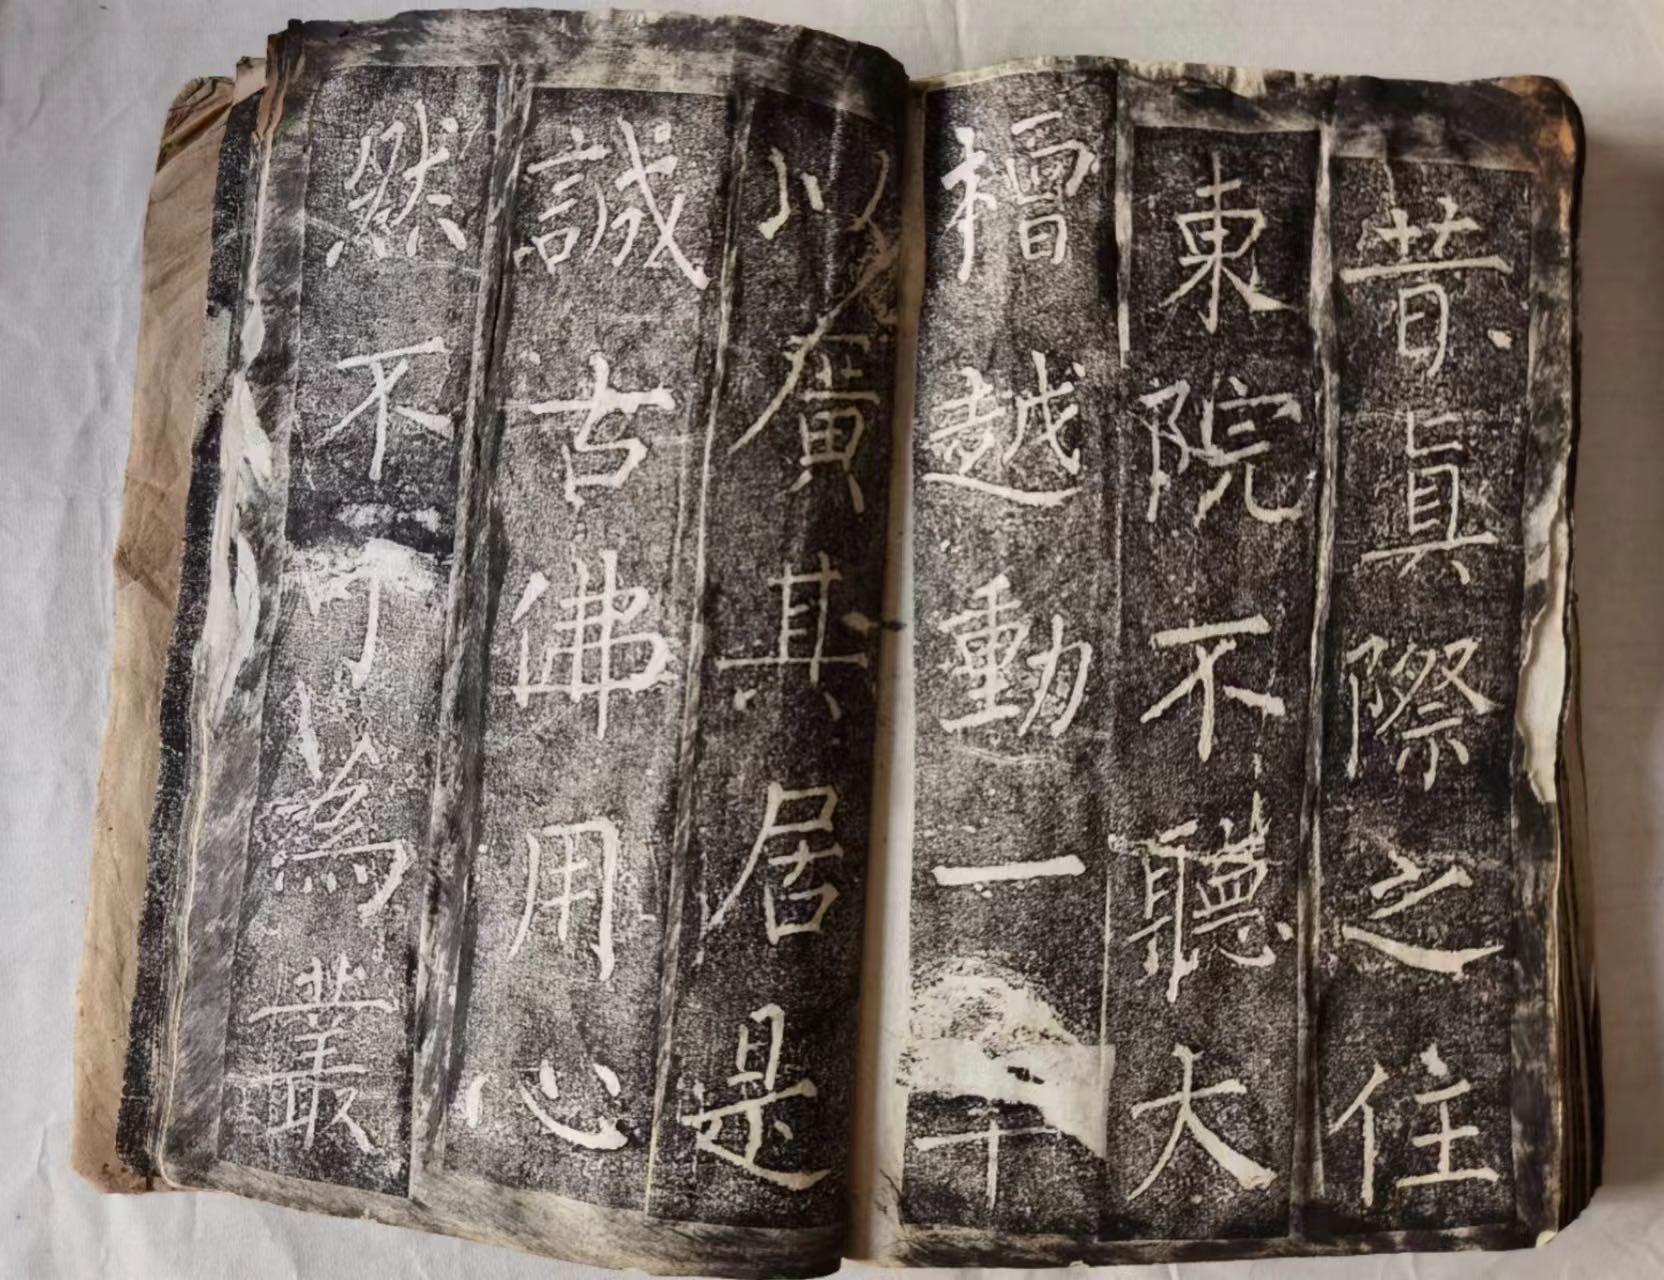 昔真際之住
東院不聽大
檀越動一
以廣其居是
誠古佛用心
然不可為叢